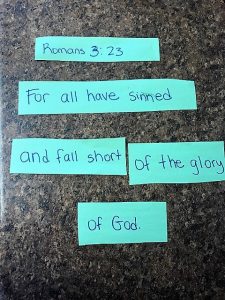 Romans 3:23
For all have sinned
and fall short of the glory
of God.